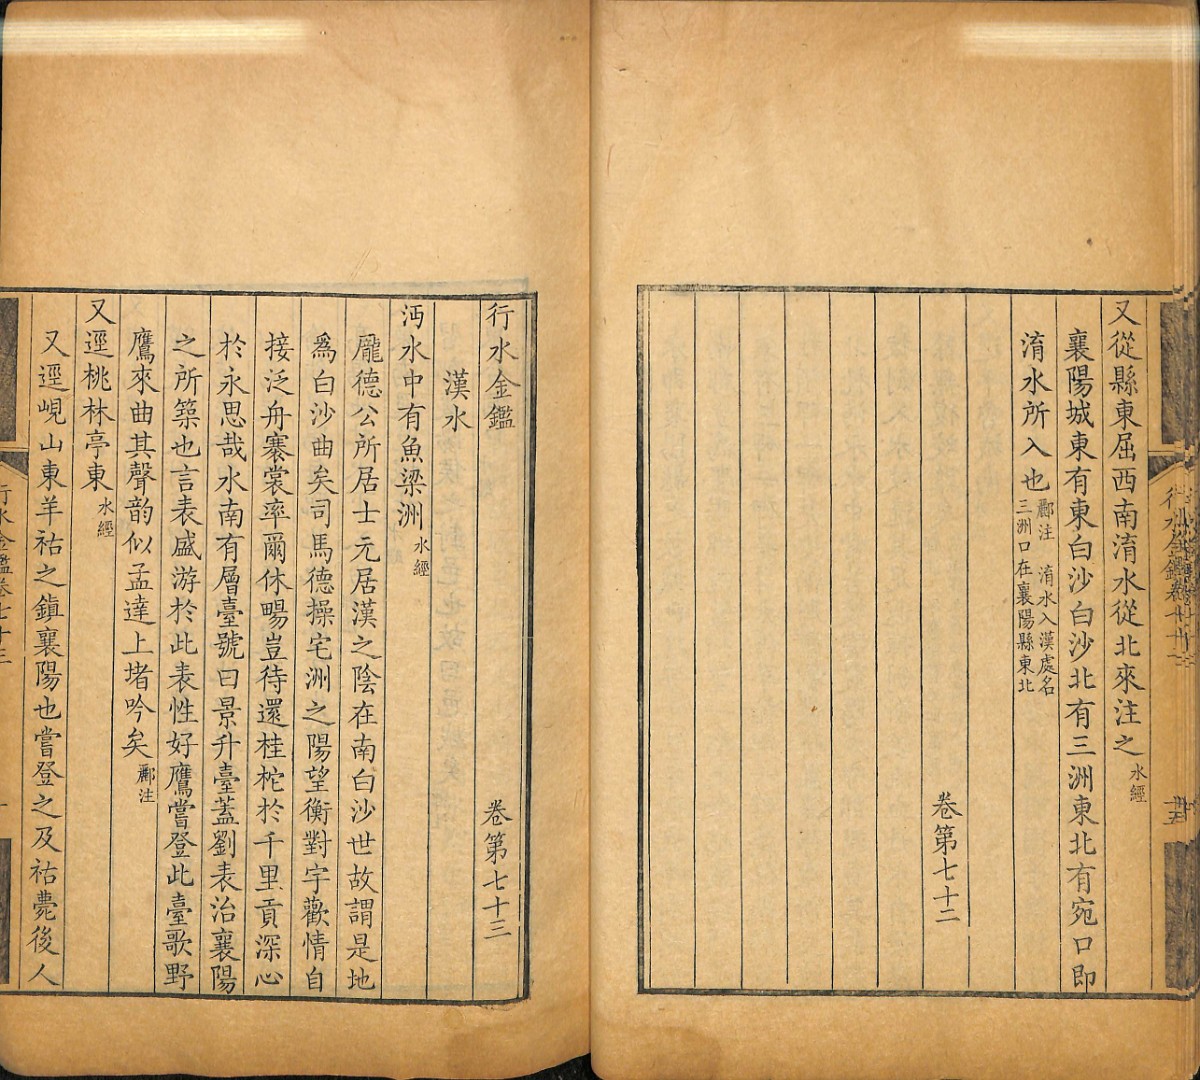 又從縣東屈西南淯水從北來注之水經
襄陽城東有東白沙白沙北有三洲東北有宛口即
淯水所入也酈注 淯水入漢處名
三洲口在襄陽縣東北
卷第七十二
行水金鑑 卷第七十三
漢水
沔水中有魚梁洲水經
龐德公所居士元居漢之陰在南白沙世故謂是地
爲白沙曲矣司馬德操宅洲之陽望衡對宇歡情自
接泛舟褰裳率爾休暢豈待還桂柁於千里貢深心
於永思哉水南有層臺號曰景升臺蓋劉表治襄陽
之所築也言表盛游於此表性好鷹嘗登此臺歌野
鷹來曲其聲韵似孟達上堵吟矣酈注
又逕桃林亭東水經
又逕峴山東羊祜之鎮襄陽也嘗登之及祜薨後人
行水金鑑卷七十三